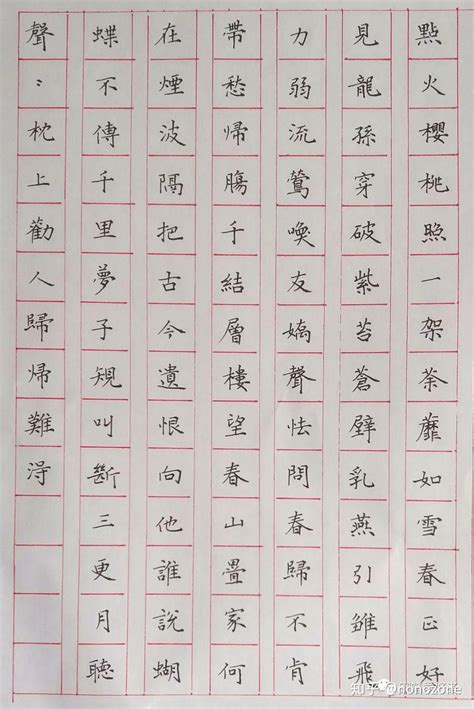 點火櫻桃照一架荼蘼如雪春正好
見龍孫穿破紫苔蒼壁乳燕引雛飛
力弱流鶯喚友嬌聲怯問春歸不肯
帶愁帰腸千結層樓望春山疊家何
在煙波隔把古今遺恨向他誰說蝴
蝶不傳千里夢子規叫斷三更月聽
聲〻枕上勸人歸帰難得
知乎 @nonozone